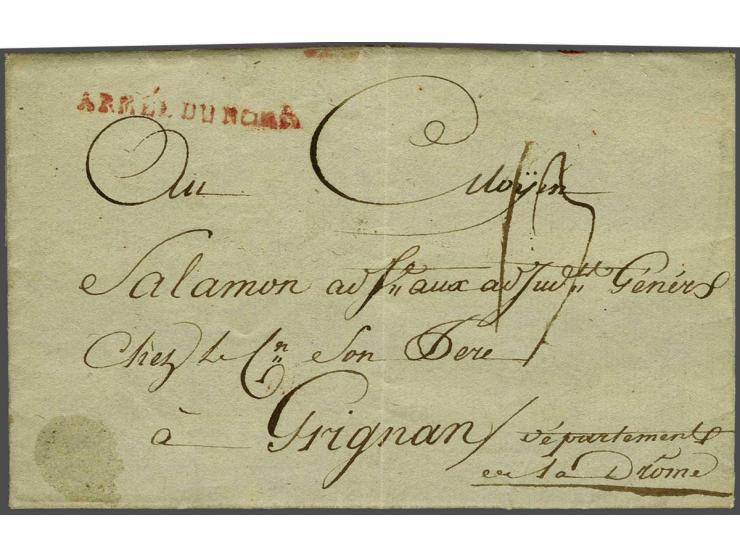 ARMÉE DU NORD
Au Citoÿen
Salamon adj.ᵗ aux adjud.ᵗˢ Génér.ˣ
Chez le C.ᵉⁿ Son Pere
à Grignan / département
de la Drôme